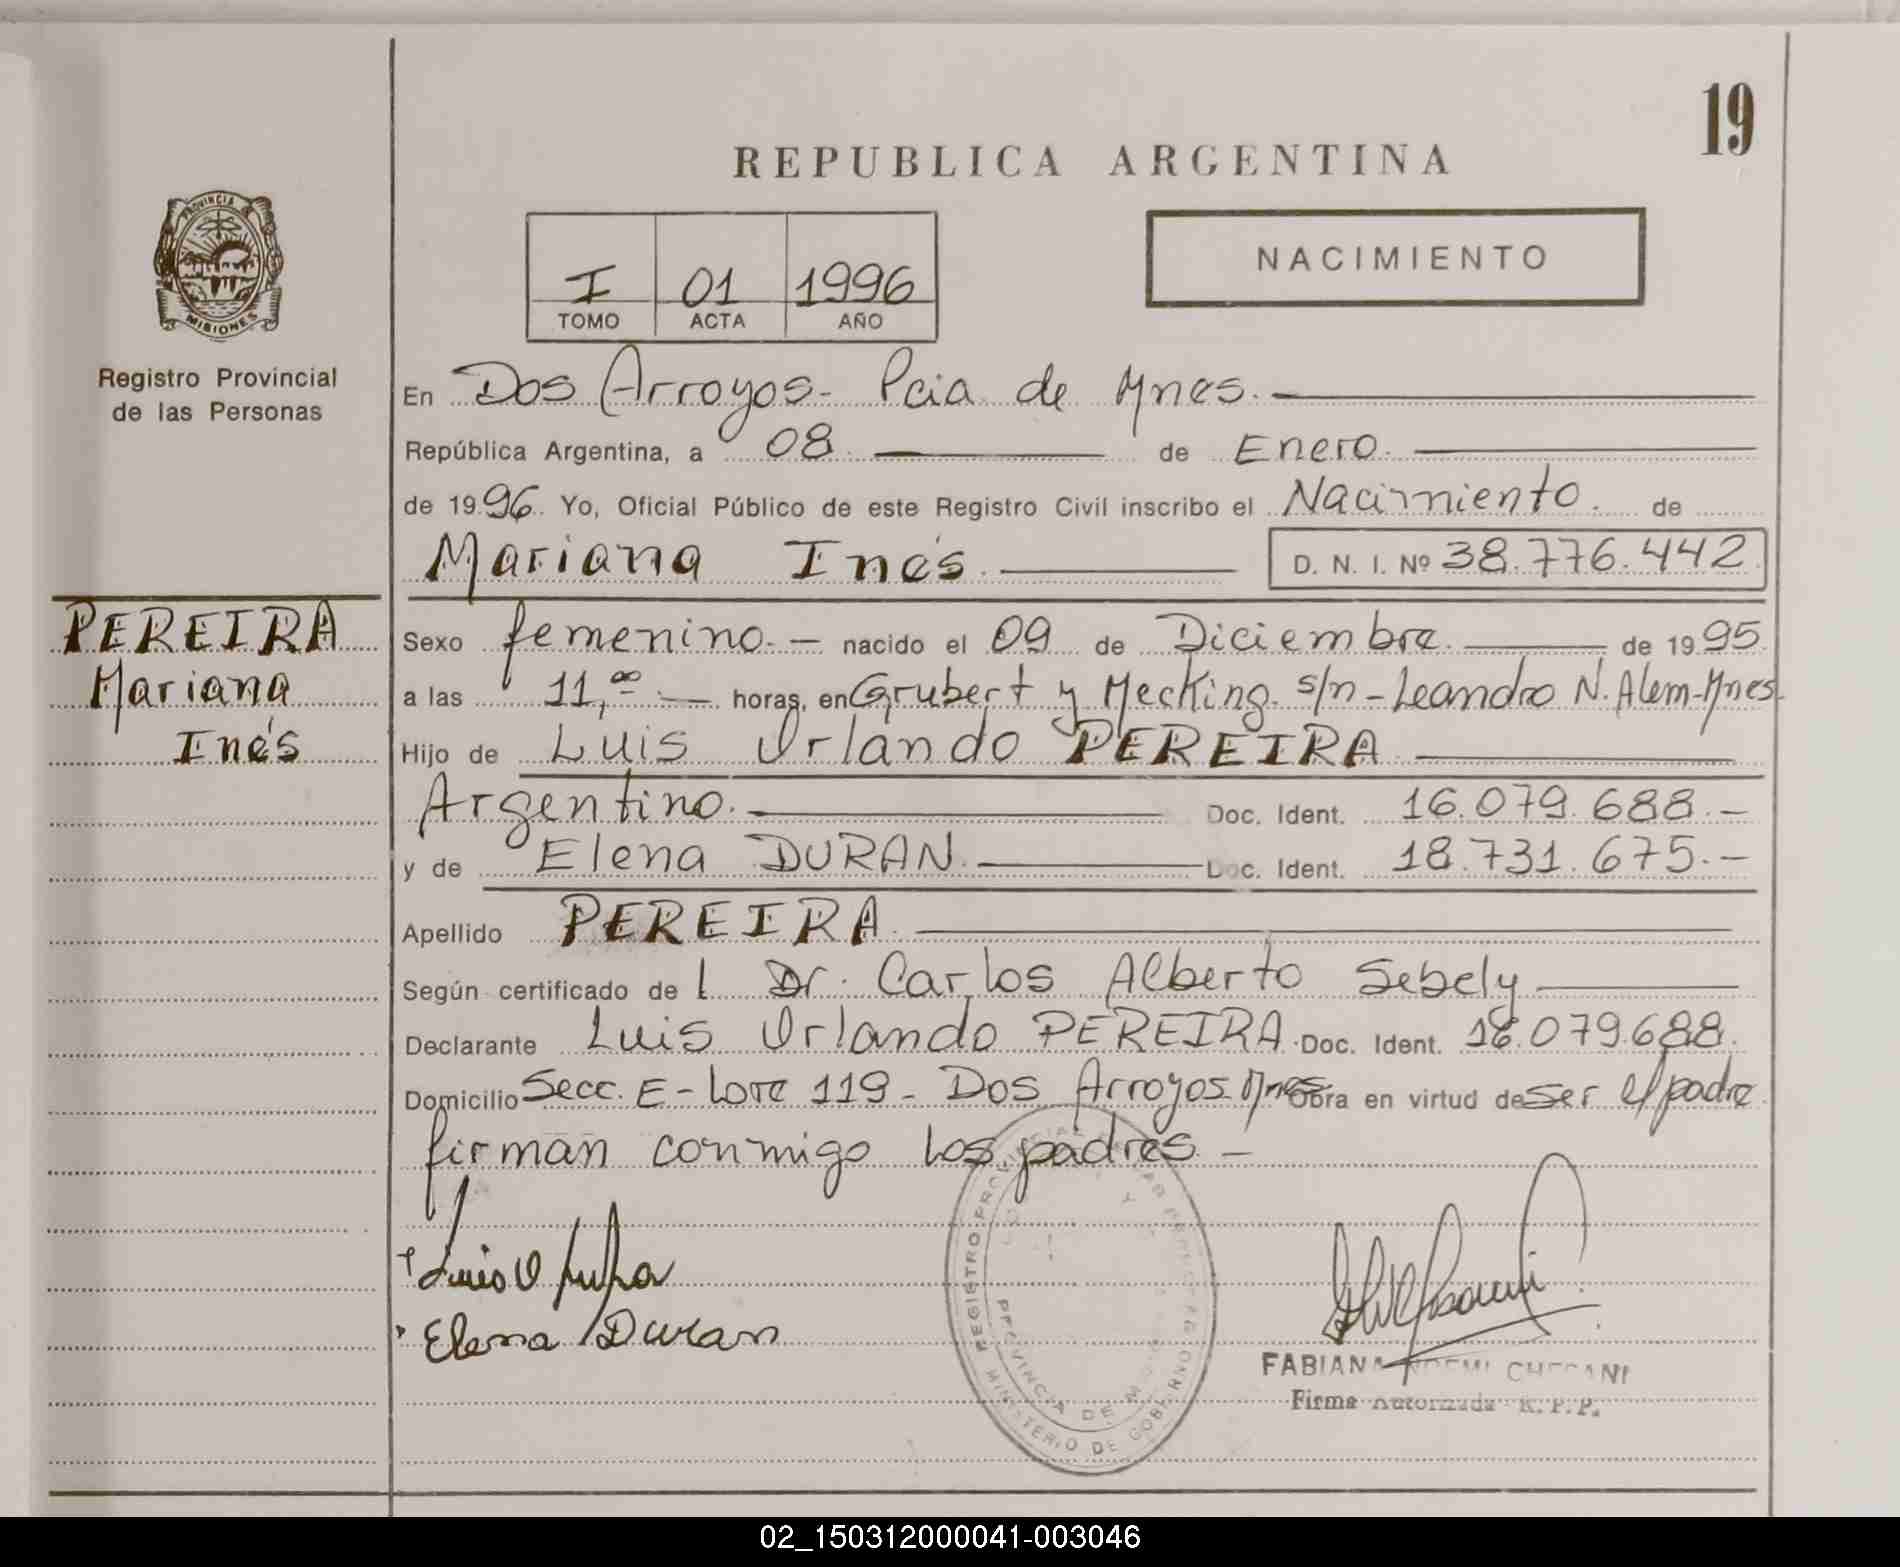 19
REPUBLICA ARGENTINA
PROVINCIA DE
MISIONES
Registro Provincial
de las Personas
I 01 1996
TOMO ACTA AÑO
NACIMIENTO
En Dos Arroyos - Pcia de Mnes.
República Argentina, a 08 de Enero.
de 1996. Yo, Oficial Público de este Registro Civil inscribo el Nacimiento. de
Mariana Inés. D. N. I. Nº 38.776.442
PEREIRA
Mariana
Inés
Sexo femenino. - nacido el 09 de Diciembre. de 1995
a las 11,00 horas, en Grubert y Mecking. s/n - Leandro N. Alem - Mnes.
Hijo de Luis Orlando PEREIRA
Argentino. Doc. Ident. 16.079.688.-
y de Elena DURAN. Doc. Ident. 18.731.675.-
Apellido PEREIRA.
Según certificado de l Dr. Carlos Alberto Sebely
Declarante Luis Orlando PEREIRA. Doc. Ident. 16.079.688.
Domicilio Secc. E - Lote 119 - Dos Arroyos. Mnes. Obra en virtud de ser el padre.
firman conmigo los padres. -
Elena Duran
REGISTRO PROVINCIAL DE LAS PERSONAS
PROVINCIA DE
MINISTERIO DE GOBIERNO
FABIANA NOEMI
Firma Autorizada R. P. P.
02_150312000041-003046